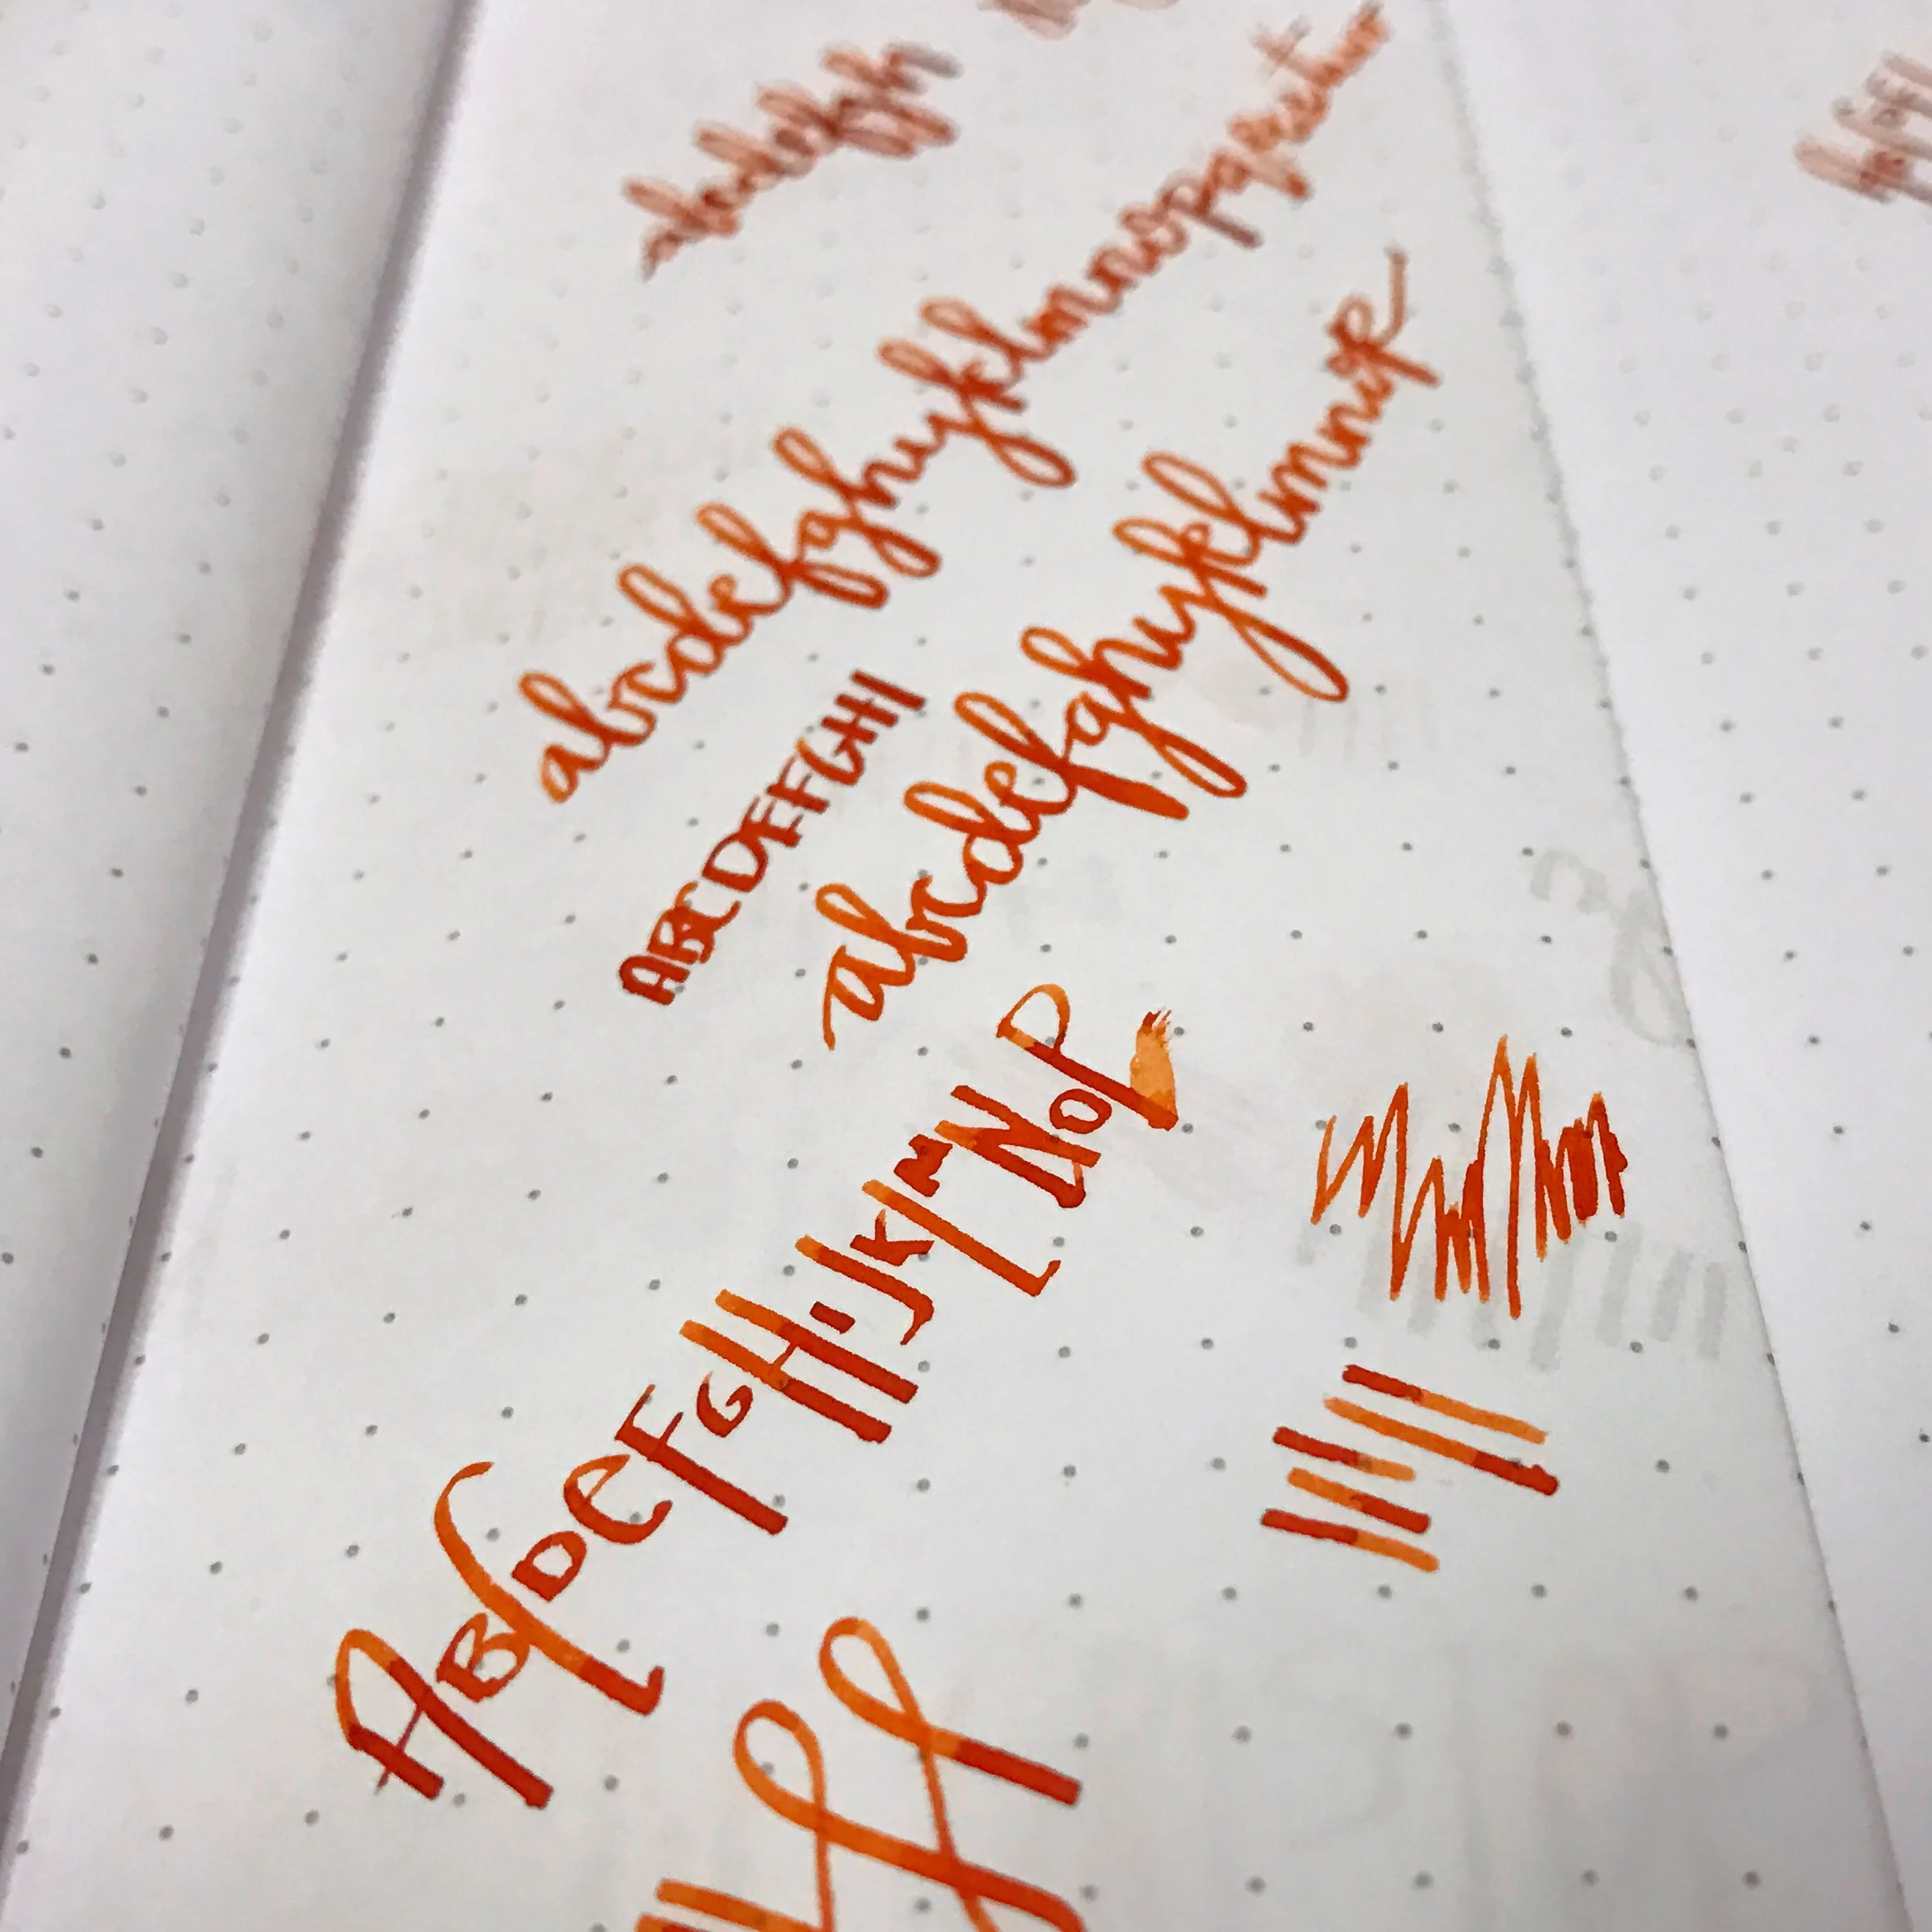 abcdefgh
abcdefghijklmnopqrstuv
ABCDEFGHI
abcdefghijklmnop
ABCDEFGHIJKLMNOP